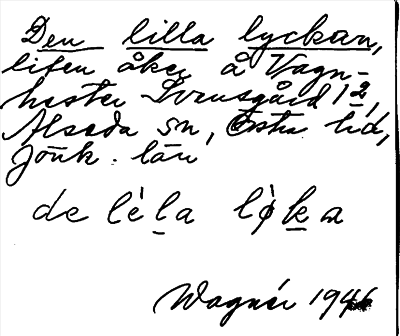 Den lilla lyckan,
liten åker å Vagn-
hester Svensgård 1 2,
Alseda sn, Östra hd,
Jönk. län
de lèḻa lø̀ḵa
Wagnér 1946